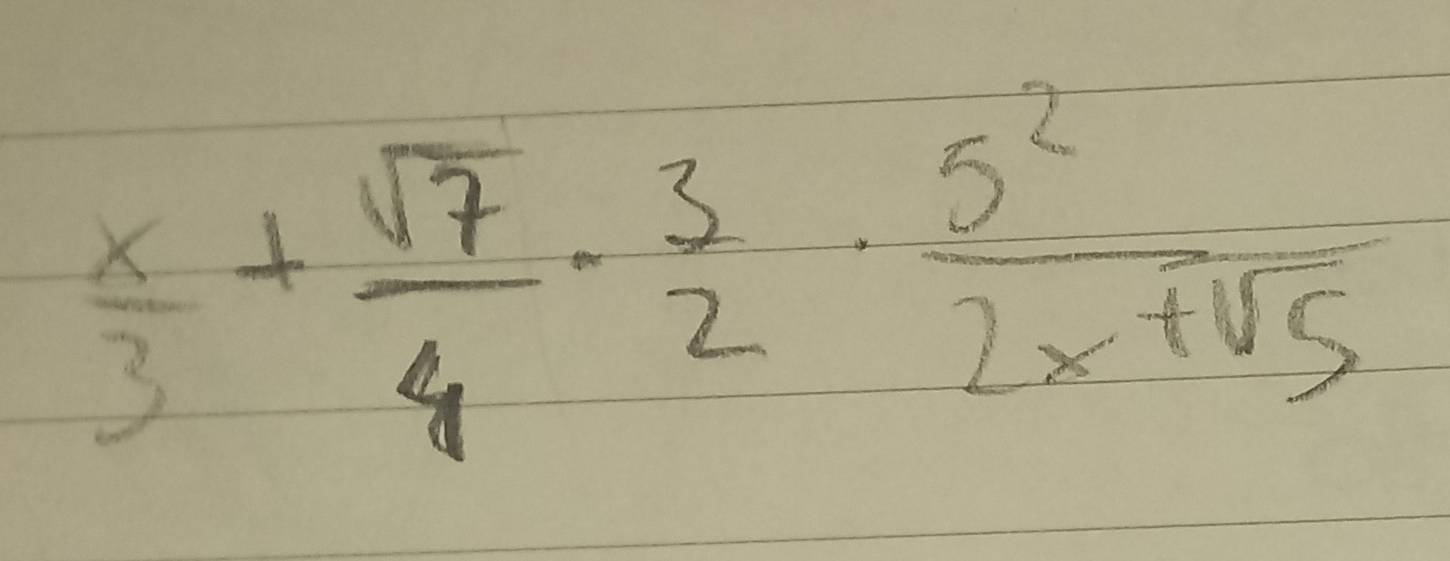 \frac{x}{3} + \frac{\sqrt{7}}{4} - \frac{3}{2} \cdot \frac{5^2}{2x + \sqrt{5}}